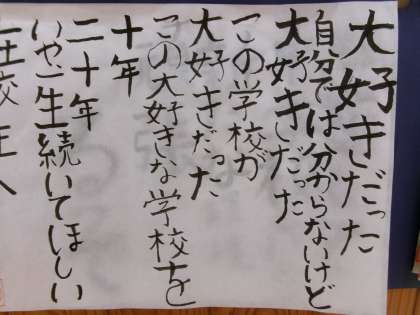 大好きだった
自分では分からないけど
大好きだった
この学校が
大好きだった
この大好きな学校を
十年
二十年
いや一生続いてほしい